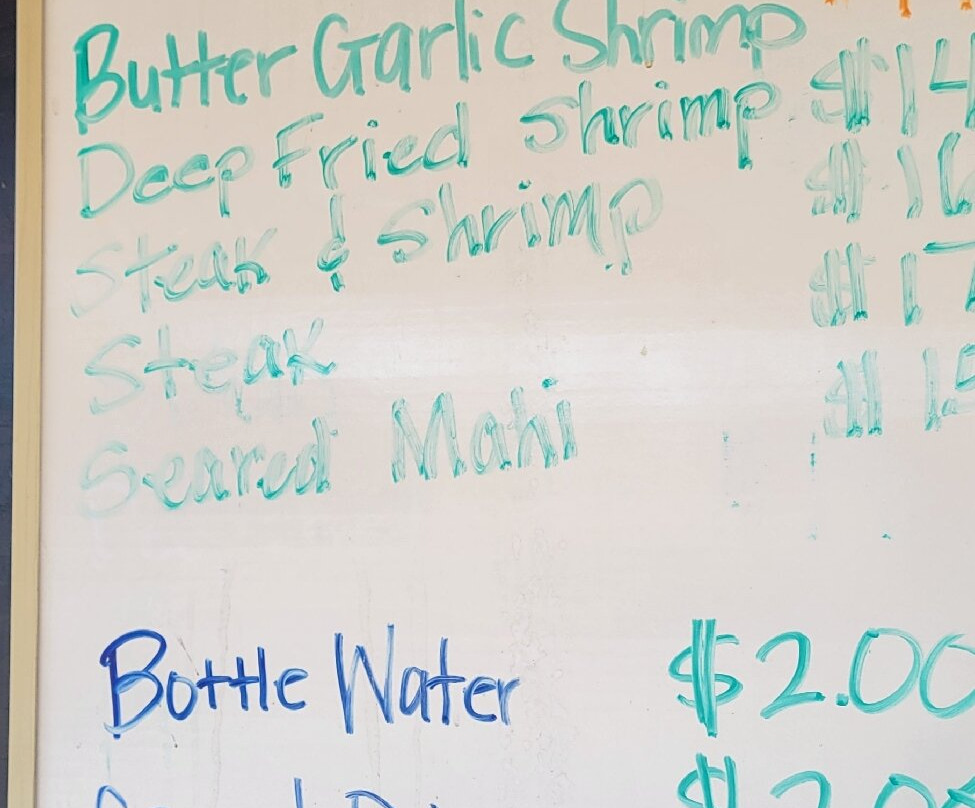 Butter Garlic Shrimp
Deep Fried Shrimp $14
Steak & Shrimp $16
Steak $17
Seared Mahi $15
Bottle Water $2.00